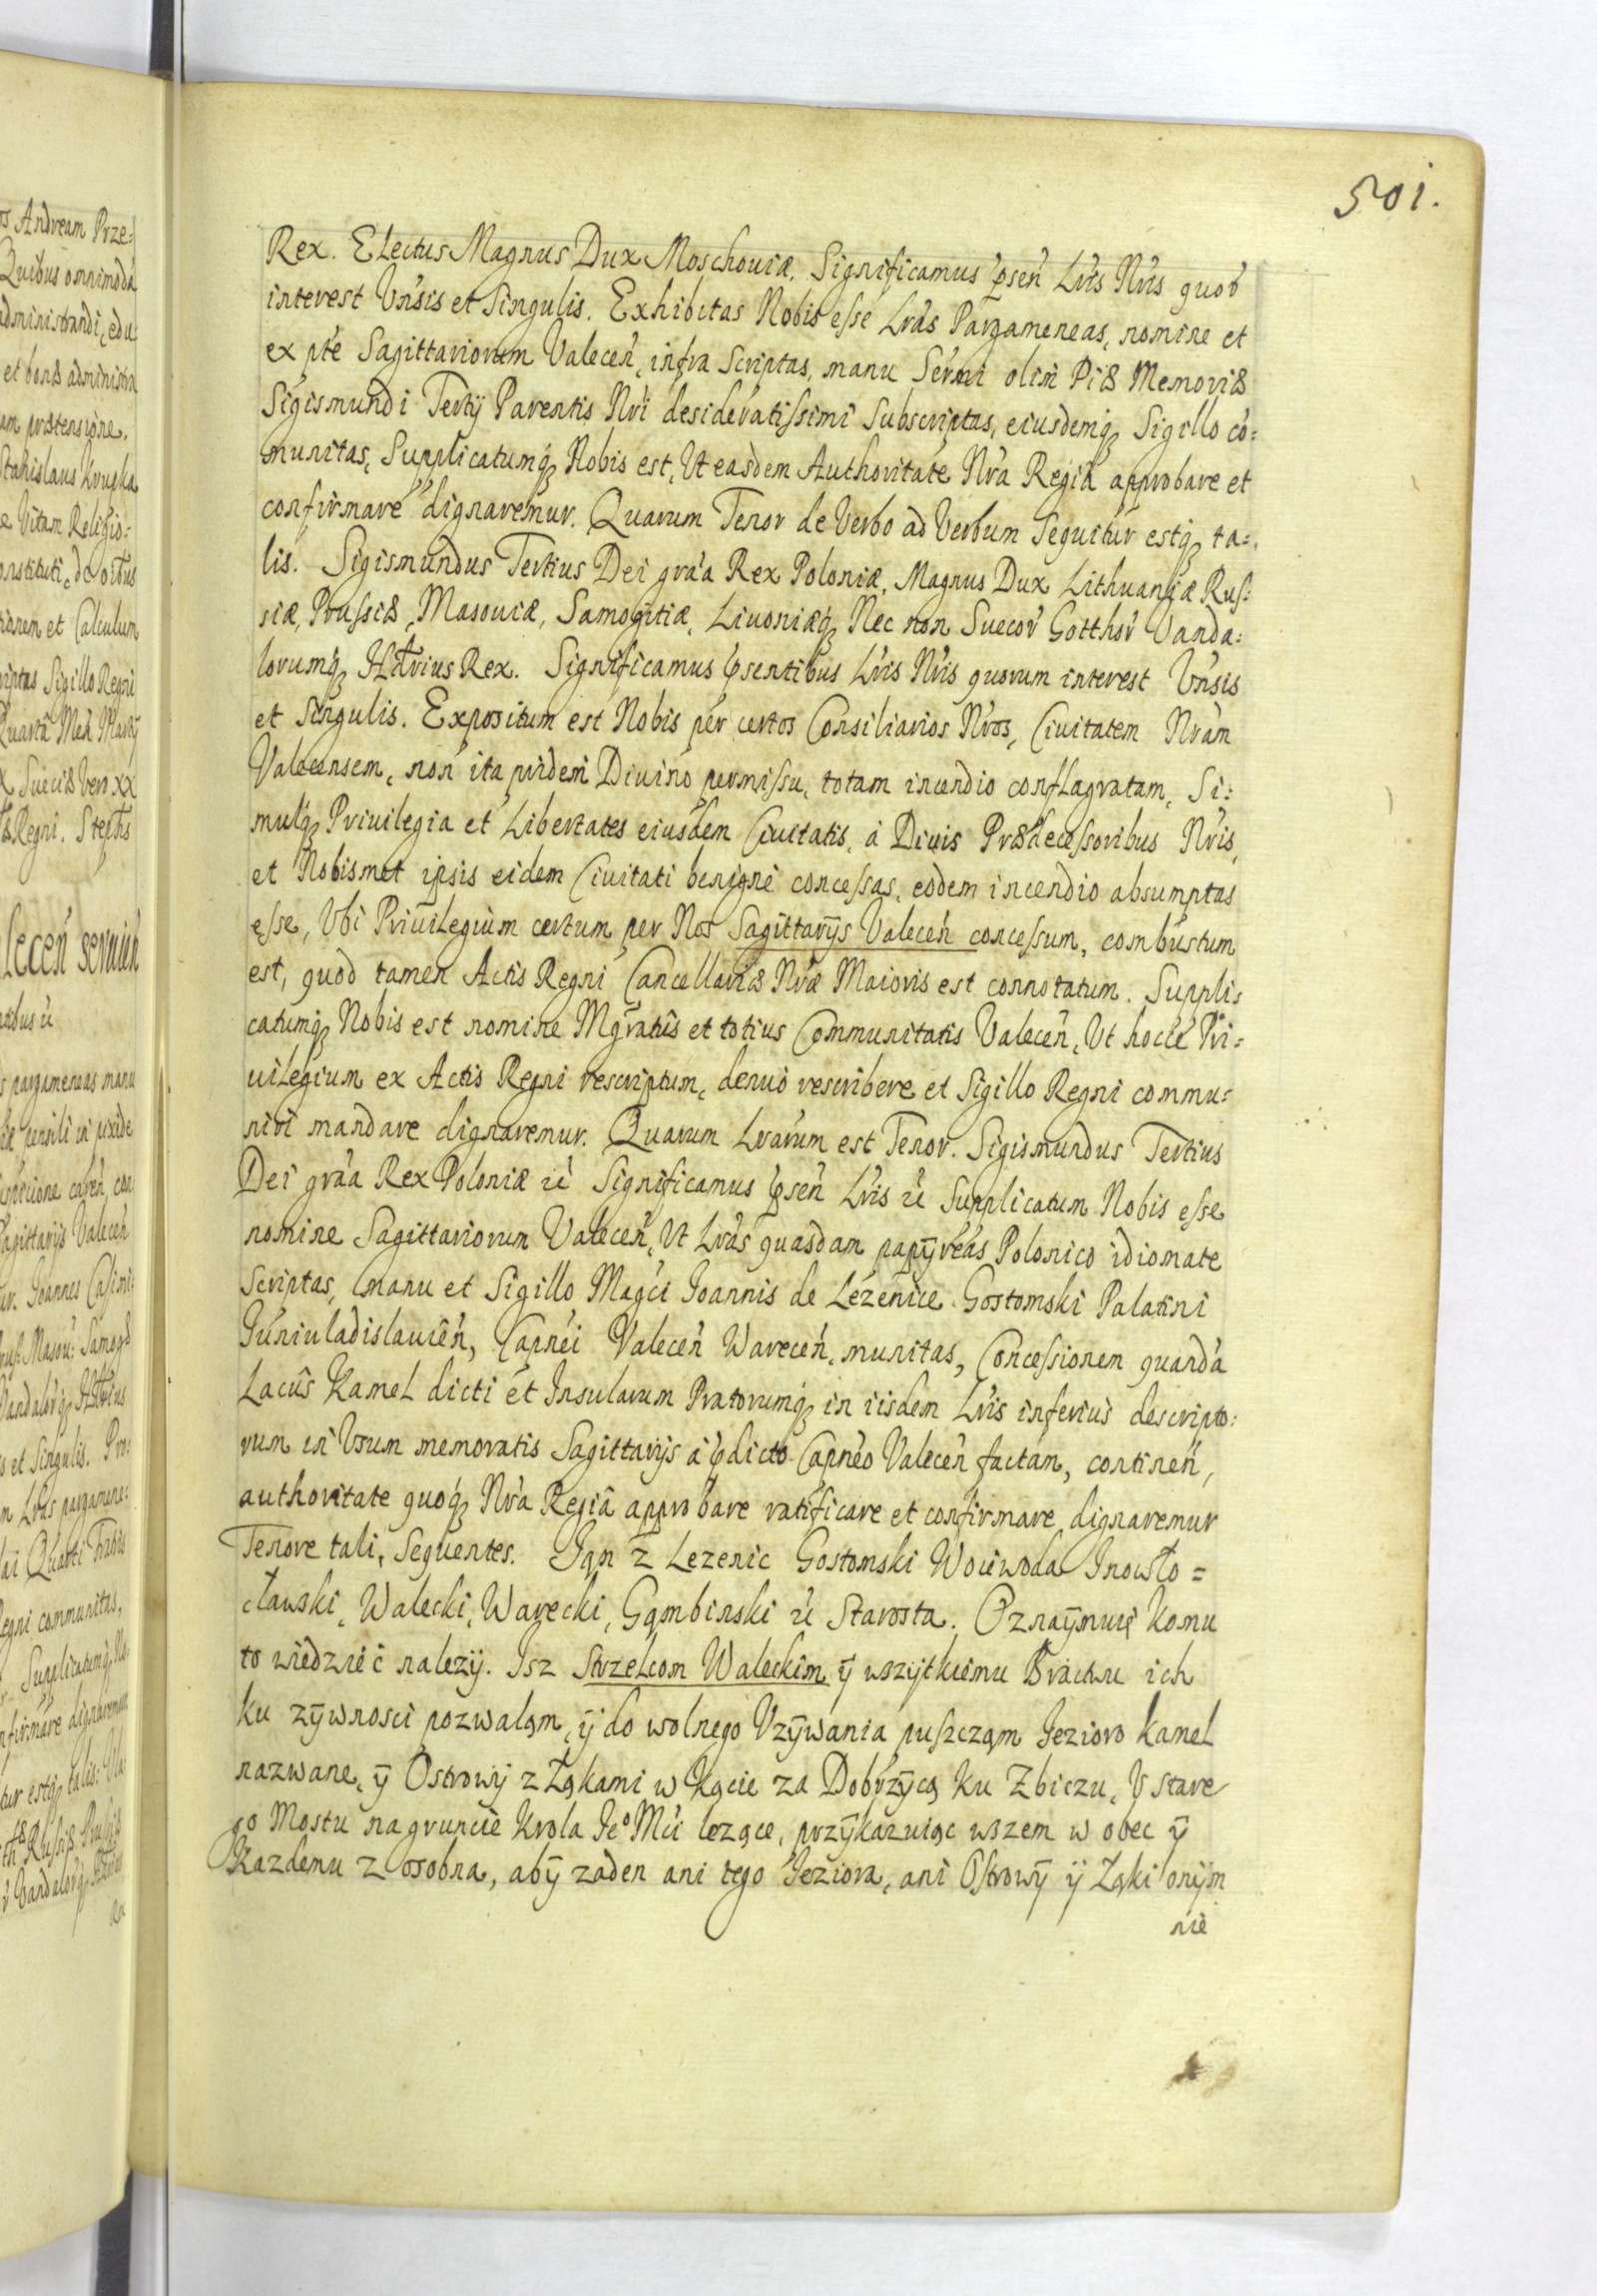 501.
Rex. Electus Magnus Dux Moschouiæ. Significamus p̱sen̄ Lr̄is Nr̄is quor̄
interest Vn̄sis et Singulis. Exhibitas Nobis esse Lr̄as Pargameneas, nomine et
ex pt̄e Sagittariorum Valecen̄, infra Scriptas, manu Serm̄i olim̄ Piæ Memoriæ
Sigismundi Tertÿ Parentis Nr̄i desideratissimi Subscriptas, eiusdemq; Sigillo co=
munitas, Supplicatumq; Nobis est, Ut easdem Authoritate Nr̄a Regiâ approbare et
confirmare dignaremur. Quarum Tenor de Verbo ad Verbum Sequitur estq; ta=
lis. Sigismundus Tertius Dei gra̅a Rex Poloniæ, Magnus Dux Lithuaniæ Rus=
siæ, Prussiæ, Masouiæ, Samogitiæ, Liuoniæq; Nec non Suecor̄ Gotthor̄ Vanda=
lorumq; Hæ̅rius Rex. Significamus p̱sentibus Lr̄is Nr̄is quorum interest Vn̄sis
et Singulis. Expositum est Nobis per certos Consiliarios Nr̄os, Ciuitatem Nr̄am
Valecensem, non ita pridem Diuino permissu, totam incendio conflagratam, Si=
mulq; Priuilegia et Libertates eiusdem Ciuitatis, à Diuis Prædecessoribus Nr̄is,
et Nobismet ipsis eidem Ciuitati benignè concessas, eodem incendio absumptas
esse, Vbi Priuilegium certum per Nos Sagittarÿs Valecen̄ concessum, combustum
est, quod tamen Actis Regni Cancellariæ Nr̄æ Maioris est connotatum. Suppli=
catumq; Nobis est nomine Mgr̄atûs et totius Communitatis Valecen̄, Ut hocce Pri=
uilegium ex Actis Regni rescriptum, denuò rescribere et Sigillo Regni commu=
niri mandare dignaremur. Quarum Lr̄arum est Tenor. Sigismundus Tertius
Dei gra̅a Rex Poloniæ ü Significamus p̱sen̄ Lr̄is ü Supplicatum Nobis esse
nomine Sagittariorum Valecen̄, Ut Lr̄as quasdam papÿreas Polonico idiomate
Scriptas, manu et Sigillo Magc̄i Joannis de Lezenice Gostomski Palatini
Juniuladislauien̄, Capnei Valecen̄ Warecen̄, munitas, Concessionem quanda̅
Lacûs Kamel dicti et Insularum Pratorumq; in iisdem Lr̄is inferiùs descripto=
rum in Vsum memoratis Sagittarÿs à p̱dicto Capneo Valecen̄ factam, continen̄,
authoritate quoq; Nr̄a Regiâ approbare ratificare et confirmare dignaremur
Tenore tali, Sequentes. Jan z Lezenic Gostomski Woiewoda Inowło=
cławski, Walecki, Warecki, Gąmbinski ü Starosta. Oznaÿmuię Komu
to wiedzieć nalezÿ. Isz Strzelcom Waleckim ÿ wszÿtkiemu Bractwu ich
ku zÿwnosci pozwaląm, ÿ do wolnego Vzÿwania puszcząm Jezioro Kamel
nazwane, ÿ Ostrowÿ z Łąkami w Kącie za Dobrzÿcą ku Zbiczu, V stare
go Mostu na gruncie Krola Jeº Mci lezące, przÿkazuiąc wszem w obec ÿ
Kazdemu z osobna, abÿ zaden ani tego Jeziora, ani Ostrowÿ ÿ Łąki onÿm
nie